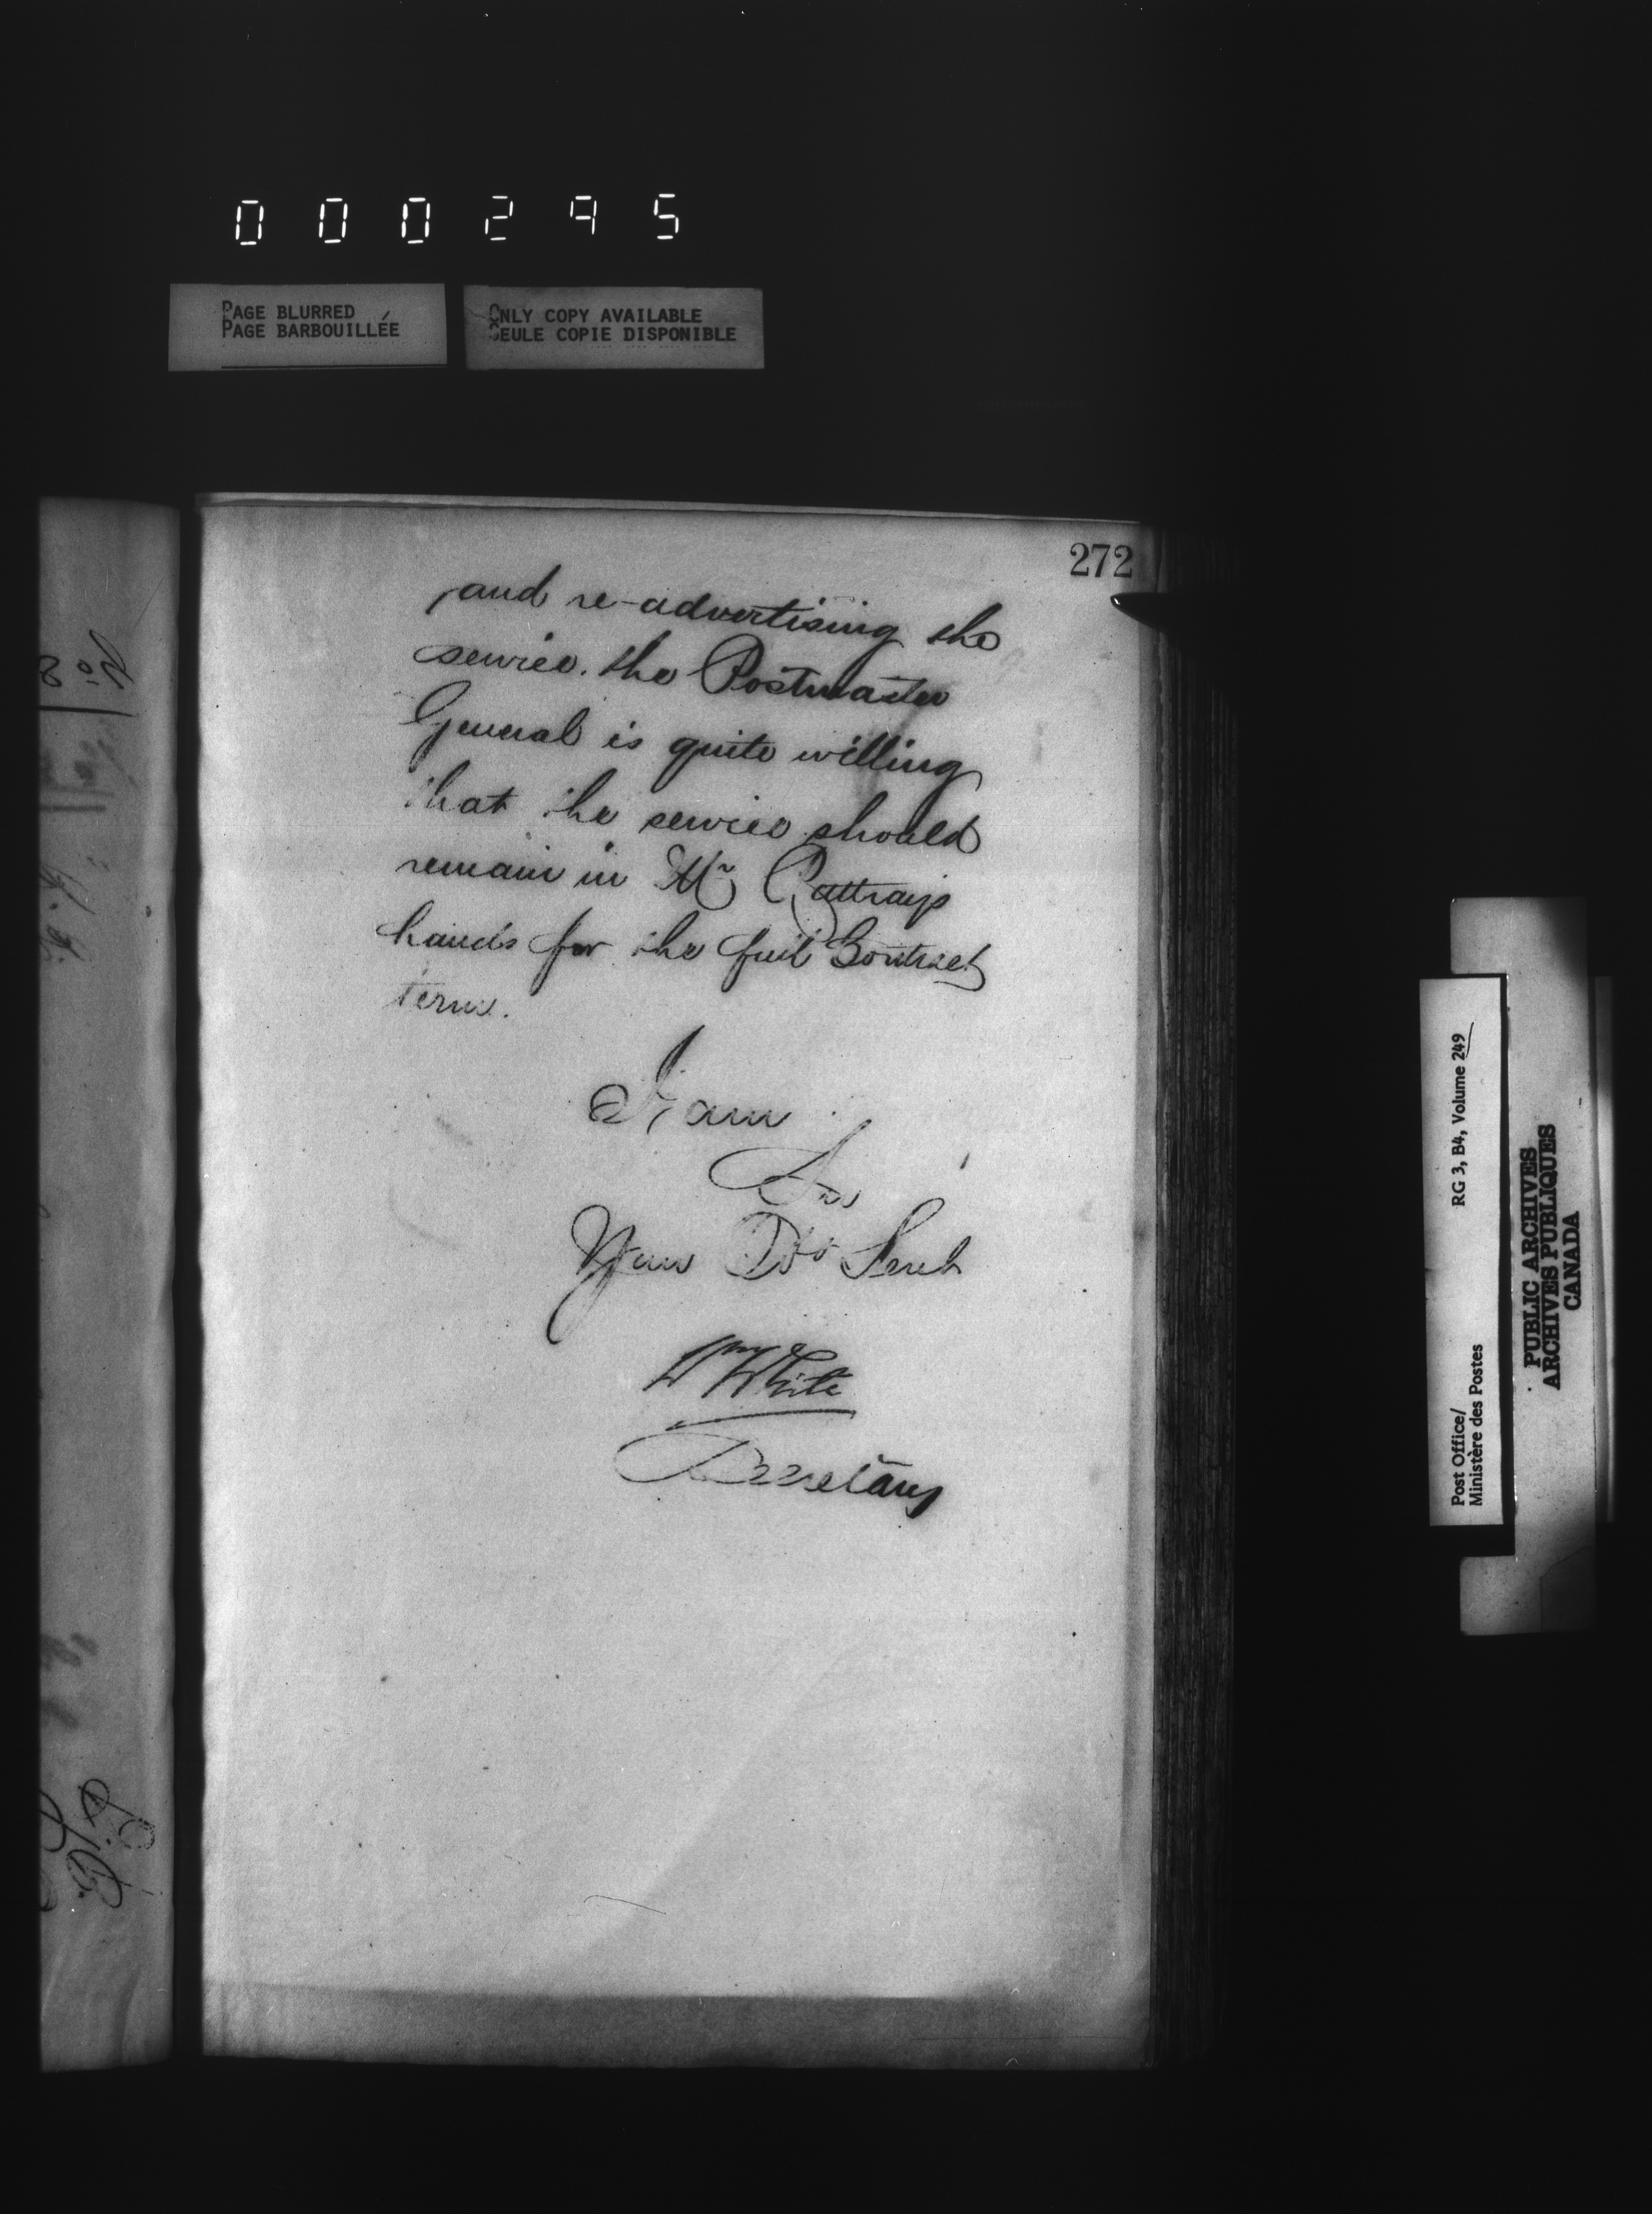 000295
PAGE BLURRED
PAGE BARBOUILLÉE
ONLY COPY AVAILABLE
SEULE COPIE DISPONIBLE
272
and re-advertising the
service. the Postmaster
General is quite willing
that the service should
remain in Mr Rattrays
hands for the full Contract
term.
I am
Sir
Your Obt Servt
Wm White
Secretary
Post Office/
Ministère des Postes
RG 3, B4, Volume 249
PUBLIC ARCHIVES
ARCHIVES PUBLIQUES
CANADA